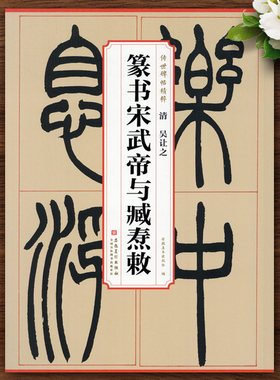 传世碑帖精粹
清 吴让之
篆书宋武帝与臧焘敕
安徽美术出版社 编
安徽美术出版社
樂中
息